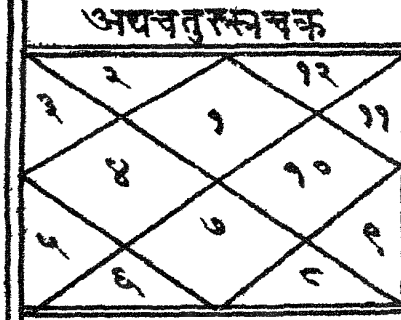 अथचतुरस्त्रचक्र
२ १२
३ १ ११
४ १०
५ ७ ९
६ ८